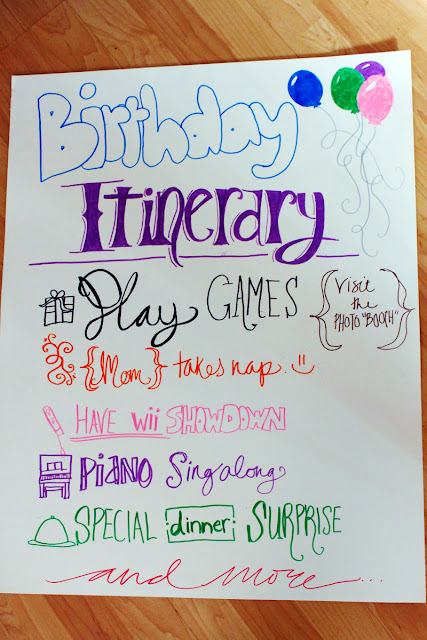 Birthday
Itinerary
Play GAMES
{Visit
the
PHOTO "BOOTH"}
{Mom} takes nap.
HAVE wii SHOWDOWN
PIANO Singalong
SPECIAL dinner SURPRISE
and more...